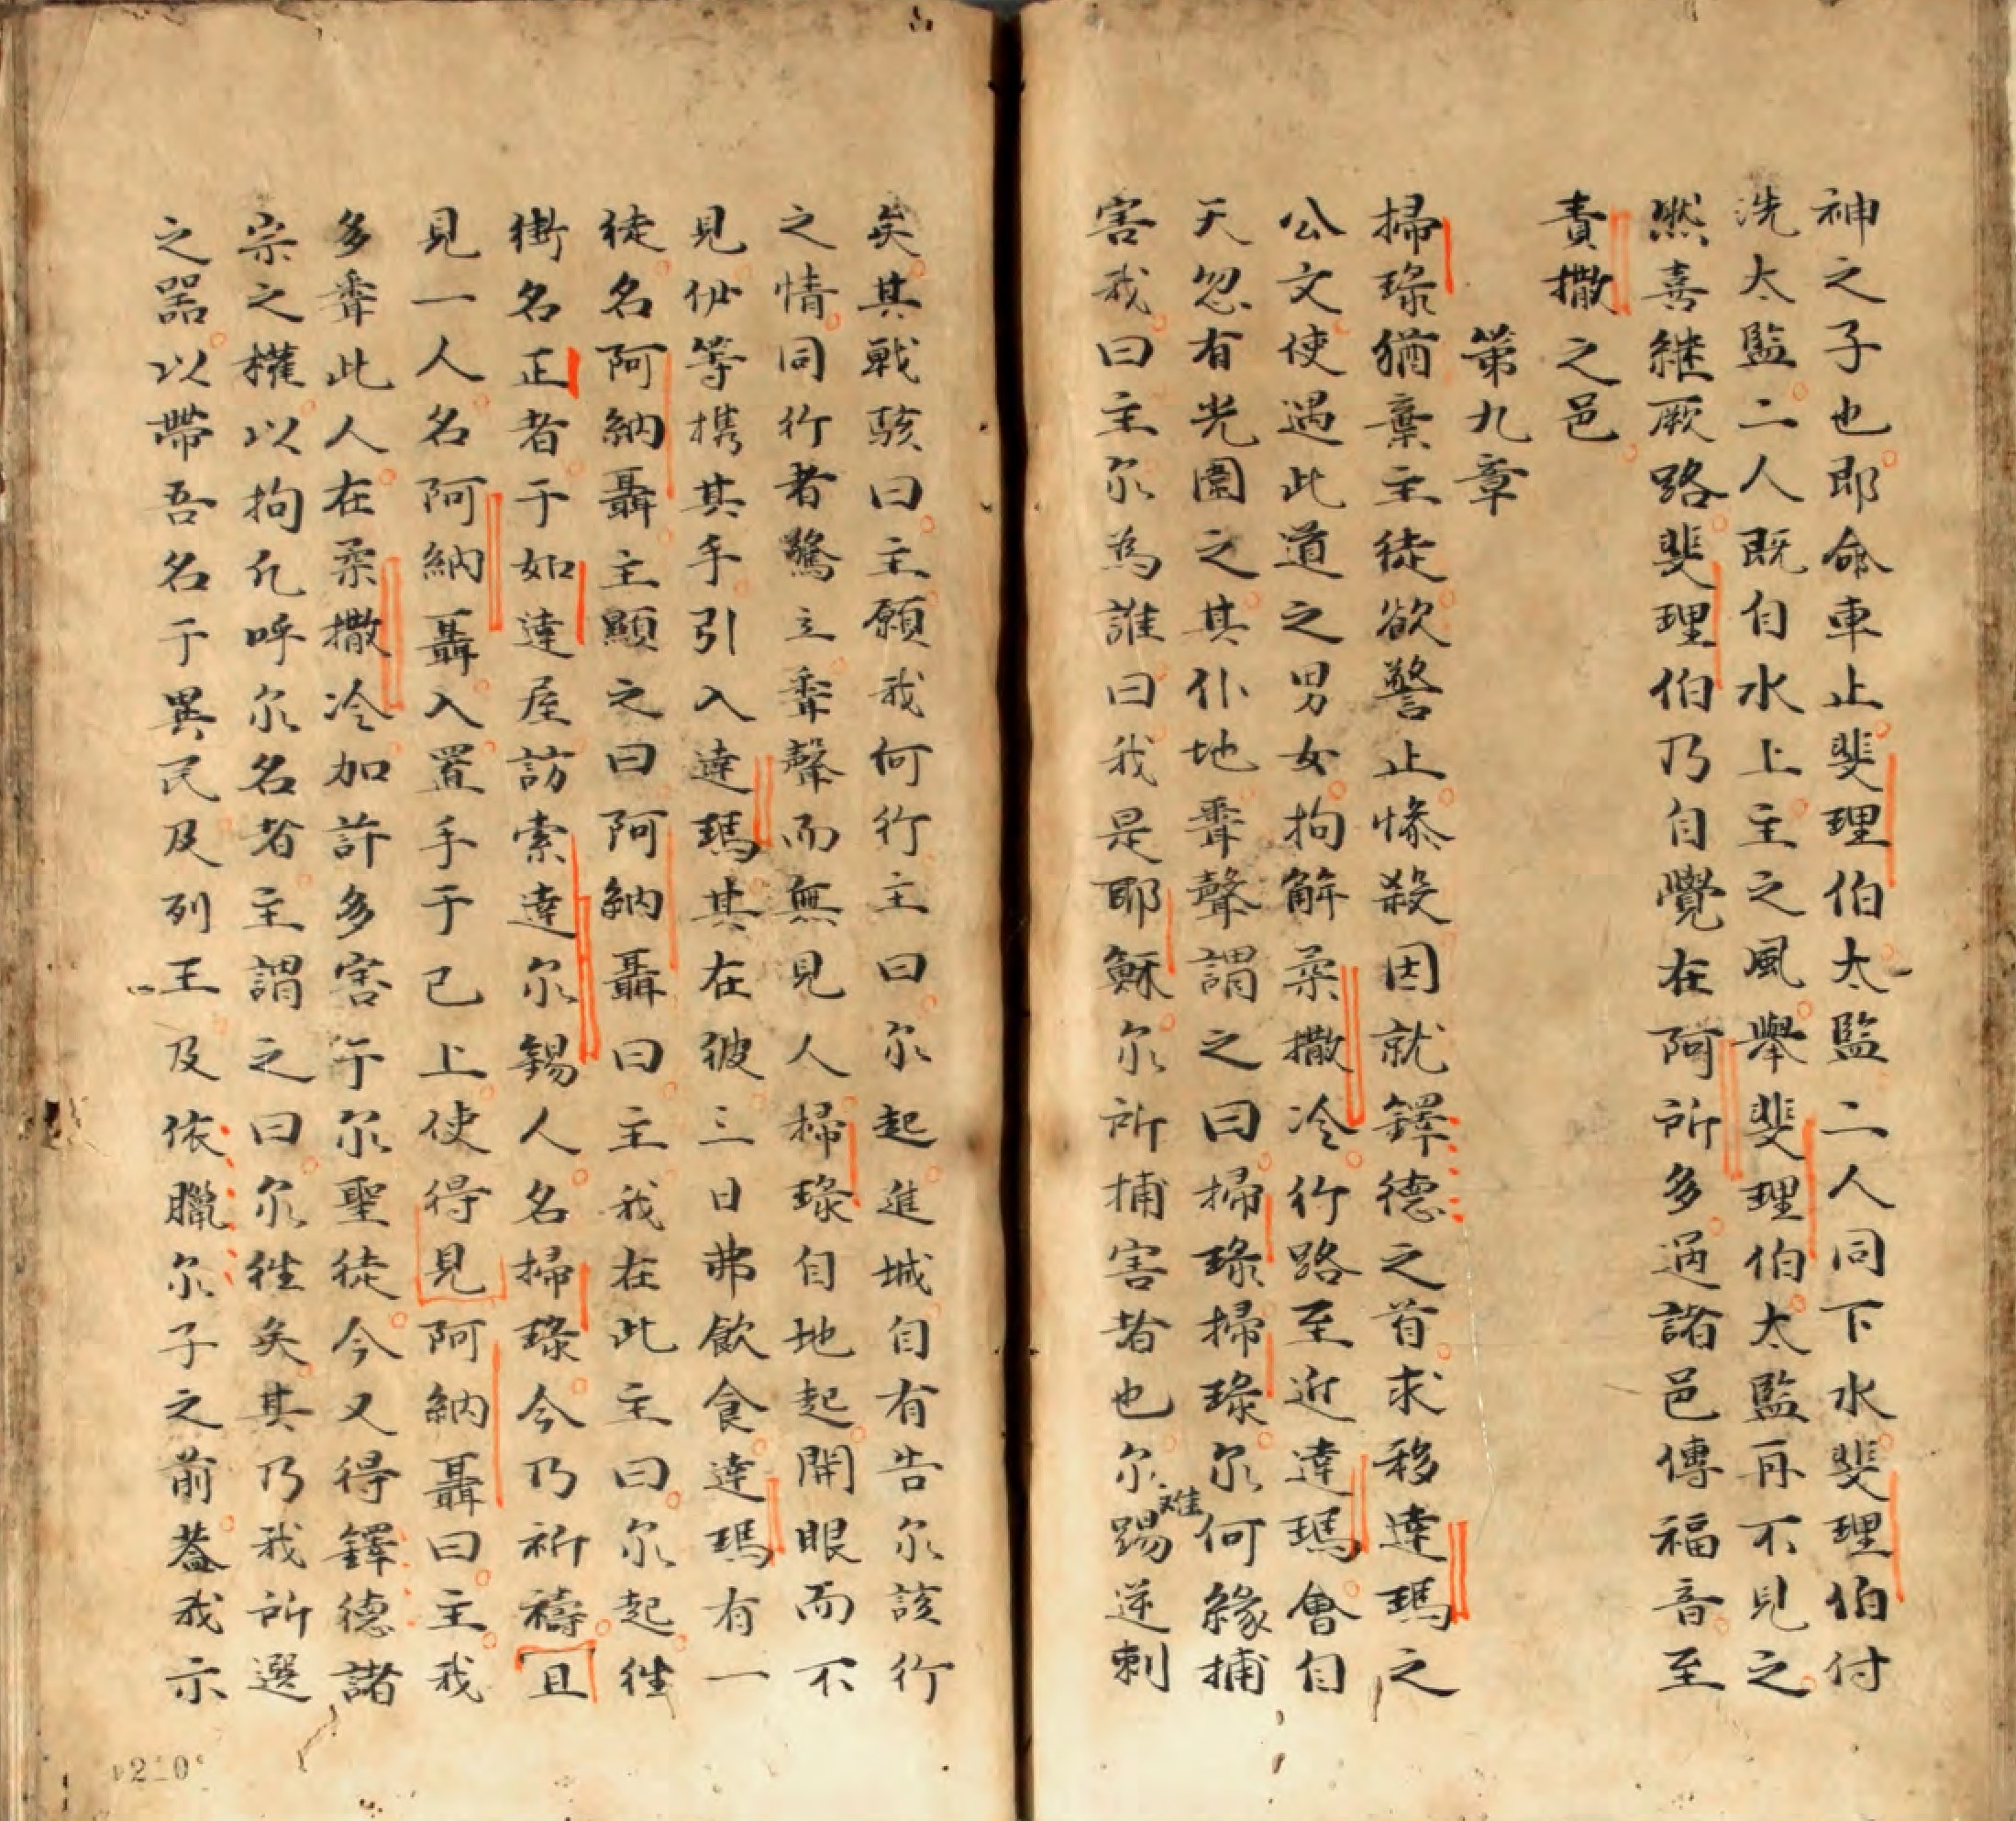 神之子也即命車止斐理伯太監二人同下水斐理伯付
洗太監二人既自水上主之風舉斐理伯太監再不見之
然喜継厥路斐理伯乃自覺在阿所多過諸邑傳福音至
責撒之邑
第九章
掃琭猶棄主徒欲警止慘殺因就鐸德之首求移達瑪之
公文使遇此道之男女拘解柔撒冷行路至近達瑪會自
天忽有光圍之其仆地聽聲謂之曰掃琭掃琭尔何緣捕
害我曰主尔為誰曰我是耶穌尔所捕害者也尔難踢逆刺
矣其戰駭曰主願我何行主曰尔起進城自有告尔該行
之情同行者驚立聽聲而無見人掃琭自地起開眼而不
見伊等携其手引入達瑪其在彼三日弗飲食達瑪有一
徒名阿納聶主顯之曰阿納聶曰主我在此主曰尔起徃
衖名正者于如達屋訪索達尔錫人名掃琭今乃祈禱且
見一人名阿納聶入置手于已上使得見阿納聶曰主我
多聽此人在柔撒冷加許多害于尔聖徒今又得鐸德諸
宗之權以拘凡呼尔名者主謂之曰尔徃矣其乃我所選
之噐以帶吾名于異民及列王及依臘尔子之前葢我示